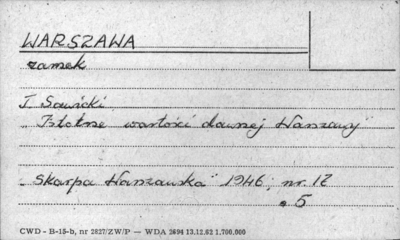 WARSZAWA
zamek
J. Sawicki
„Istotne wartości dawnej Warszawy"
„Skarpa Warszawska" 1946, nr. 12
s. 5
CWD - B-15-b, nr 2827/ZW/P — WDA 2694 13.12.62 1.700.000